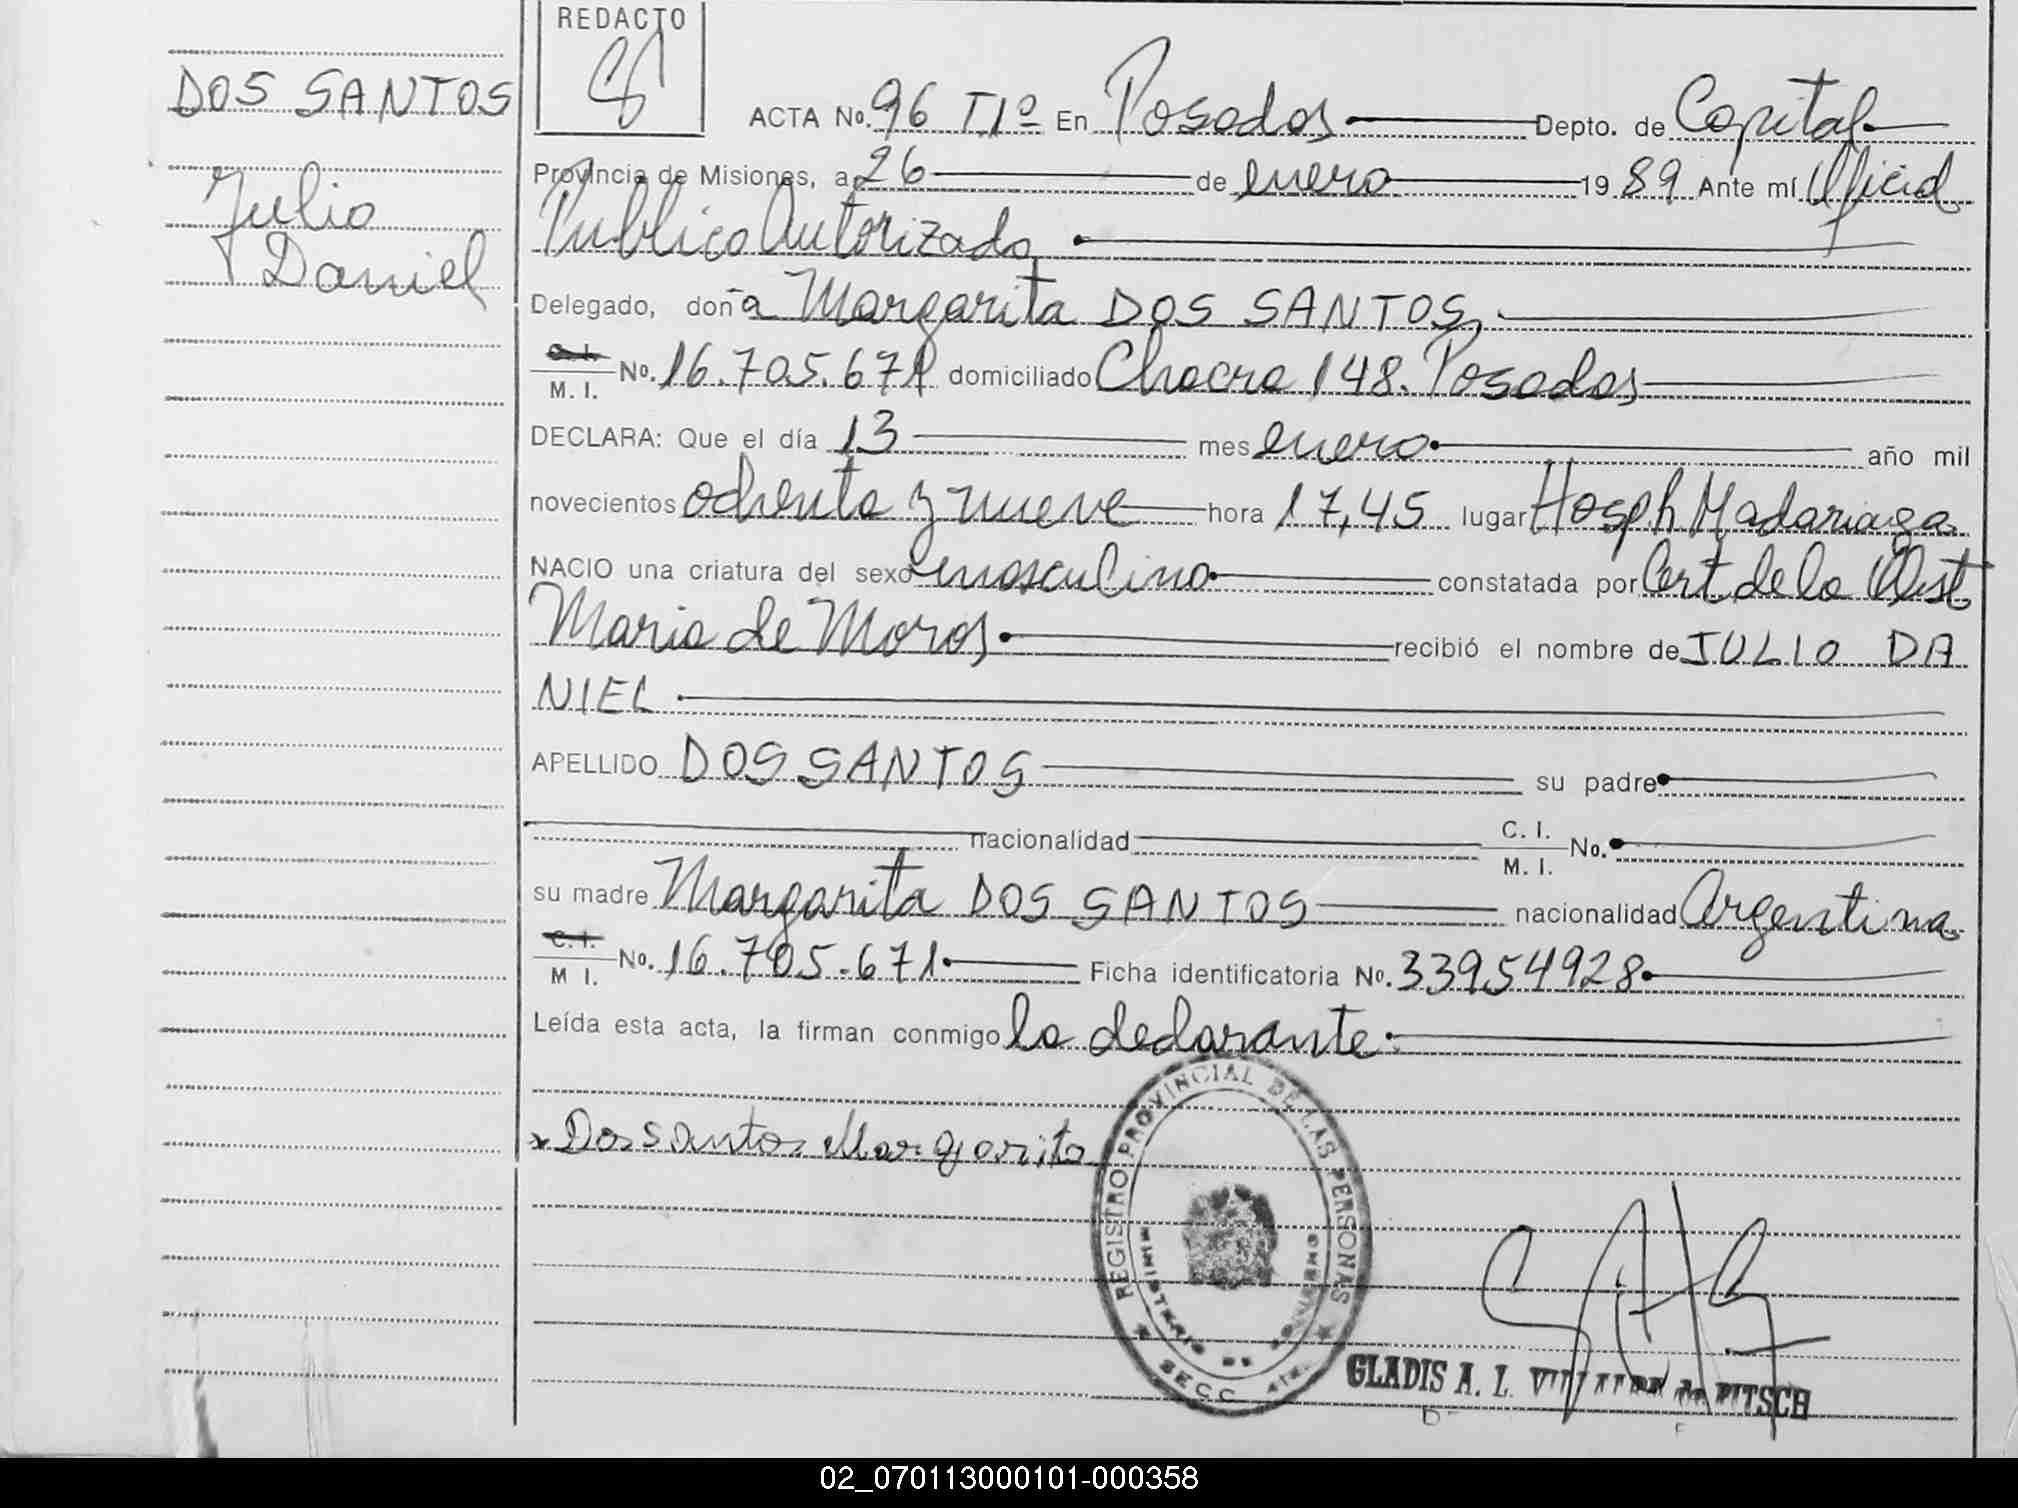 DOS SANTOS
Julio
Daniel
REDACTO
ACTA No. 96 T.1º En Posadas Depto. de Capital
Provincia de Misiones, a 26 de enero 19 89 Ante mí Oficial
Publico Autorizado
Delegado, doña Margarita DOS SANTOS,
C. I.
M. I. No. 16.705.671 domiciliado Chacra 148. Posadas
DECLARA: Que el día 13 mes enero año mil
novecientos ochenta y nueve hora 17,45 lugar Hosp h Madariaga
NACIO una criatura del sexo masculino constatada por Cert. de la Obst
Maria de Moros recibió el nombre de JULIO DA
NIEL
APELLIDO DOS SANTOS su padre
nacionalidad C. I.
M. I. No.
su madre Margarita DOS SANTOS nacionalidad Argentina
C. I.
M I. No. 16.705.671 Ficha identificatoria No. 33954928
Leída esta acta, la firman conmigo la declarante.
x Dos santos Margarita
REGISTRO PROVINCIAL DE LAS PERSONAS
MINISTERIO DE GOBIERNO
SECC.
GLADIS A. L. de PITSCH
02_070113000101-000358